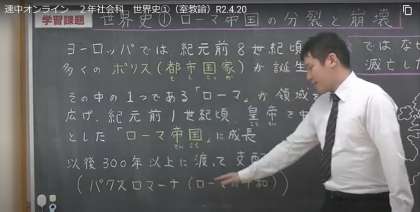 速中オンライン 2年社会科 世界史①(室教諭) R2.4.20
学習課題 世界史① ローマ帝国の分裂と崩壊
ヨーロッパでは紀元前8世紀頃 ではな
多くのポリス(都市国家)が誕生 滅亡した
その中の1つである「ローマ」が領域を
広げ、紀元前1世紀頃 皇帝
とした「ローマ帝国」に成長
以後300年以上に渡って支配
(パクスロマーナ(ロー